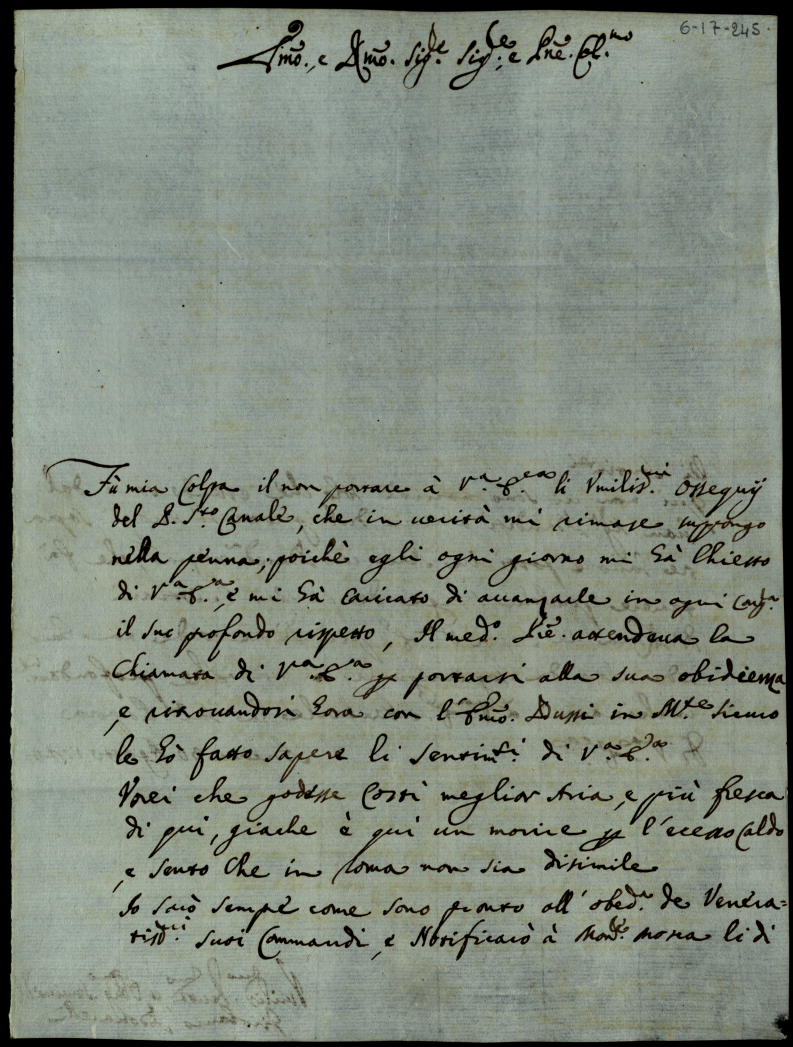 6-17-245.
Illmo., e Rmo. Sigre. Sigre., e Pne. Col.mo
Fù mia Colpa il non portare à Va. Ecca. li Vmiliss.mi Ossequij
del P. Canale, che in uerità mi rimase suppongo
nella penna; poichè egli ogni giorno mi hà Chiesto
di Va. Ea., e mi hà caricato di auanzarle in ogni
il suo profondo rispetto, Il medo. Pre. attendeua la
Chiamata di Va. Ea. p portarsi alla sua obidienza
, e ritrouandosi hora con l'Emo. Bussi in Mte. sicuro
le hò fatto sapere li sentimti. di Va. Ea.
Vorei che godesse Costì meglior Aria, e più fresca
di quì, giache è quì un morire p l'ecesso Caldo
, e sento che in roma non sia disimile
Io sarò sempre come sono pronto all' obeda. de Venera=
tissmi. suoi Commandi, e Notificarò à Monre. Mosca li di